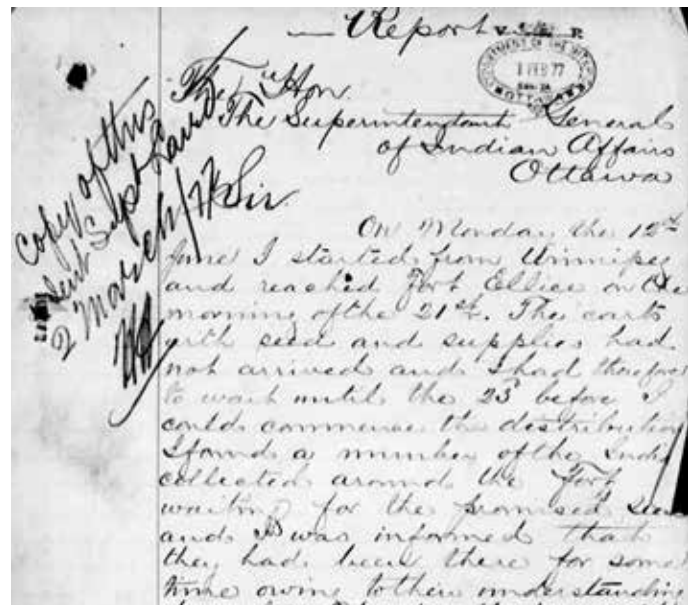 Report
The Hon.
The Superintendent General
of Indian Affairs
Ottawa
Sir
On Monday the 12th
June I started from Winnipeg
and reached Fort Ellice on the
morning of the 21st. The carts
with seed and supplies had
not arrived and I had therefore
to wait until the 23d before I
could commence the distribution
I found a number of the
collected around the Fort
waiting for the promised
and I was informed that
they had been there for some
time owing to their understanding
copy of this
sent Supt Laird
2 March/77
1 FEB 77